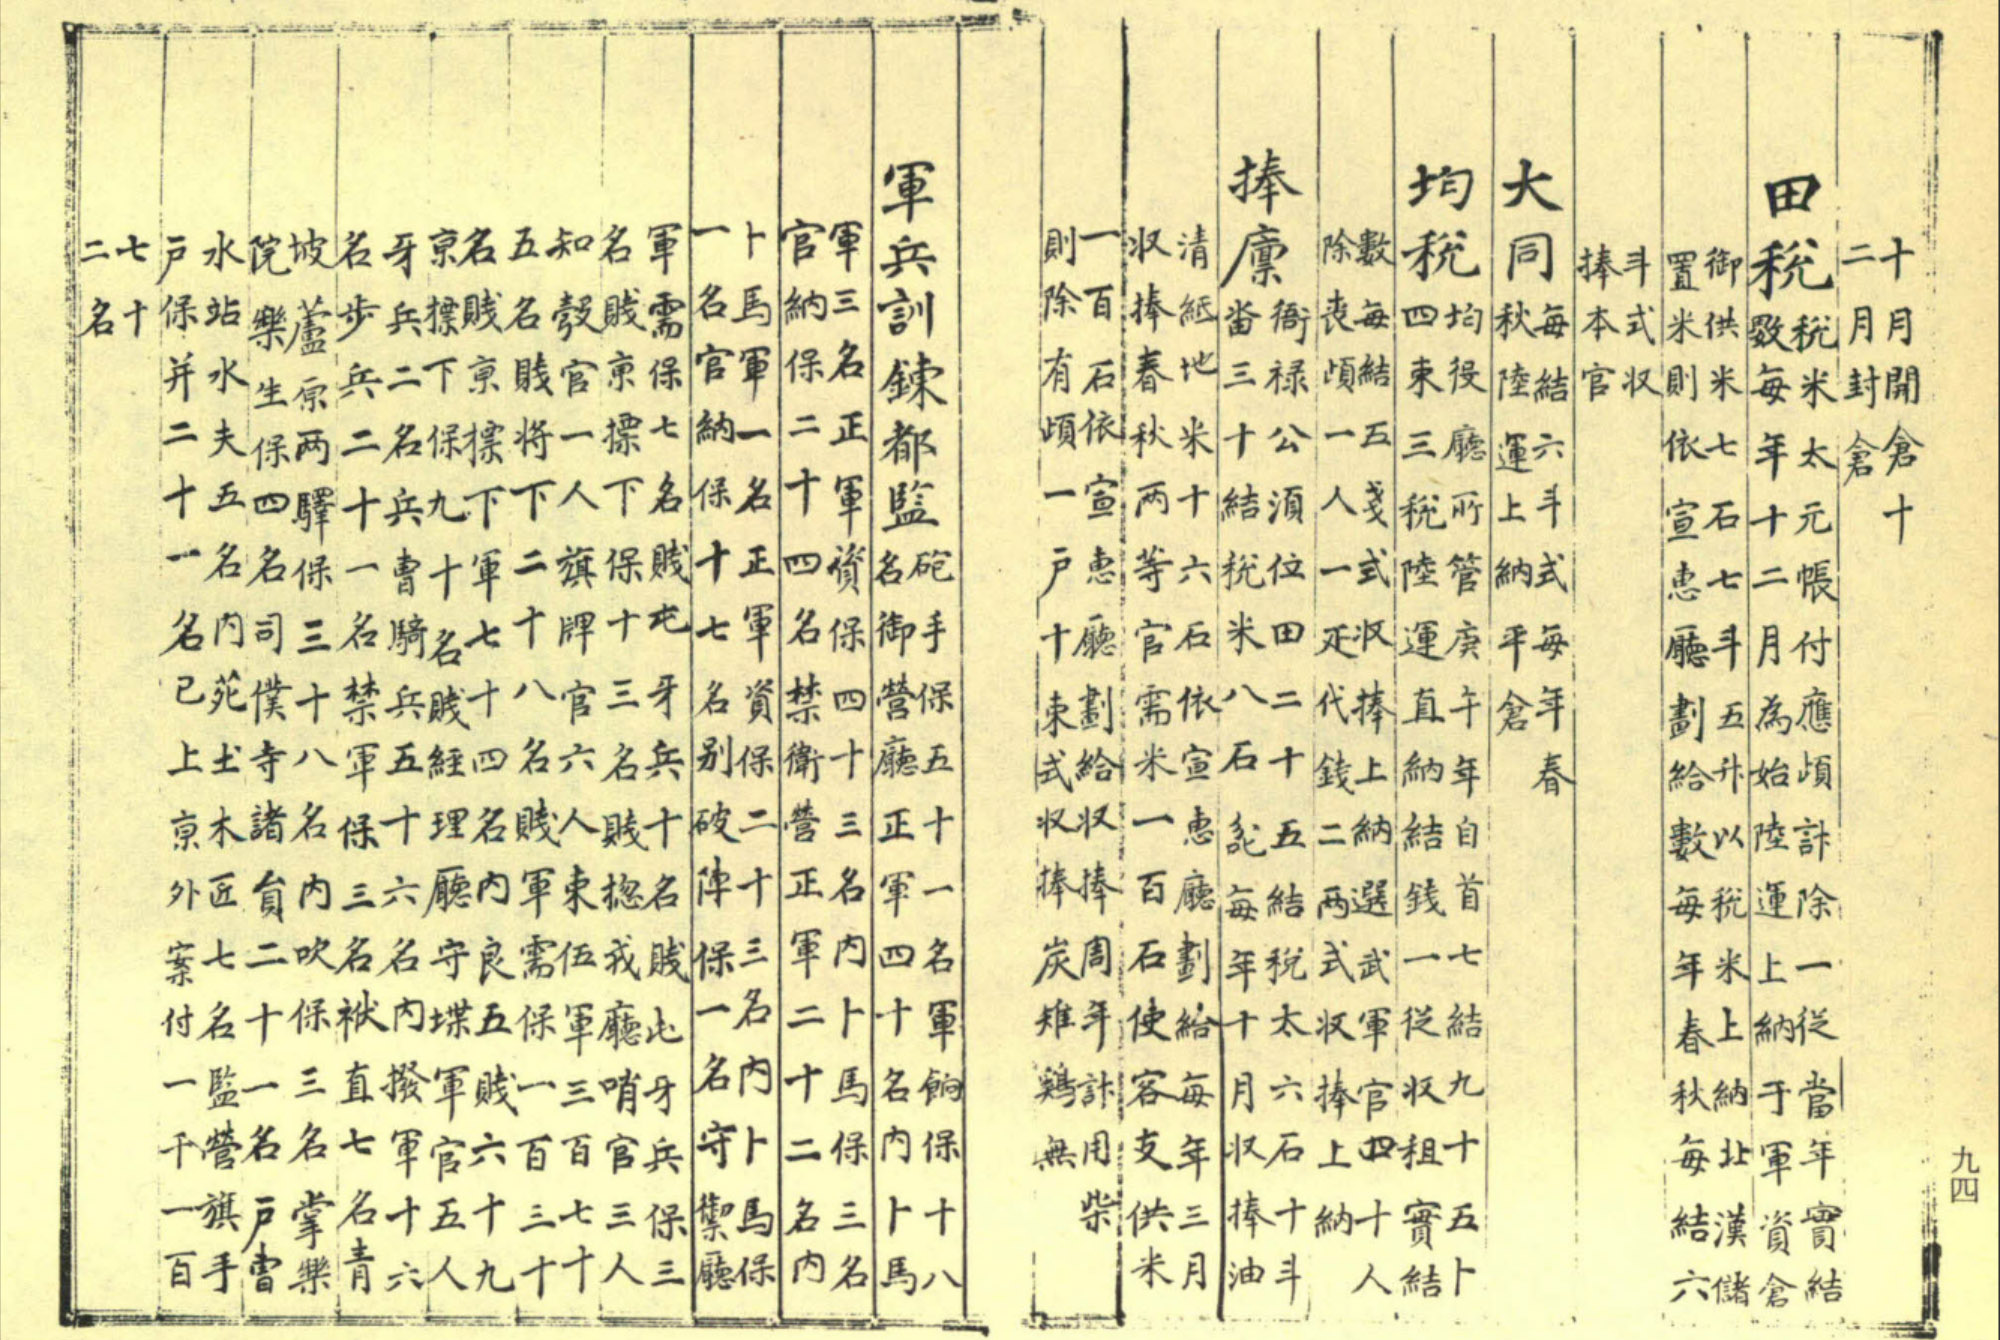 十月開倉十
二月封倉
田稅
稅米太元帳付應頉計除一從當年實結
數每年十二月為始陸運上納于軍資倉
御供米七石七斗五升以稅米上納北漢儲
置米則依宣惠廳劃給數每年春秋每結六
斗式収
捧本官
大同
每結六斗式每年春
秋陸運上納平倉
均稅
均役廳所管庚午年自首七結九十五卜
四束三稅陸運直納結錢一從収租實結
數每結五戔式収捧上納選武軍官四十人
除喪頉一人一疋代錢二两式収捧上納
捧廩
衙禄公須位田二十五結稅太六石十斗
畓三十結稅米八石每年十月収捧油
清紙地米十六石依宣惠廳劃給每年三月
収捧春秋两等官需米一百石使客支供米
一百石依宣惠廳劃給収捧周年計用柴
則除有頉一戶十束式収捧炭雉鷄無
軍兵訓鍊都監
砲手保五十一名軍餉保十八
名御營廳正軍四十名内卜馬
軍三名正軍資保四十三名内卜馬保三名
官納保二十四名禁衛營正軍二十二名内
卜馬軍一名正軍資保二十三名内卜馬保
一名官納保十七名别破陣保一名守禦廳
軍需保七名賎屯牙兵十名賎屯牙兵保三
名賎京摽下保十三名賎摠戎廳哨官三人
知彀官一人旗牌官六人束伍軍三百七十
五名賎将下二十八名賎軍需保一百三十
名賎京摽下軍七十四名内良五賎六十九
京摽下保九十名賎經理廳守堞軍官五人
牙兵二名兵曹騎兵五十六名内撥軍十六
名步兵二十一名禁軍保三名袱直七名青
坡蘆原两驛保三十八名内吹保三名掌樂
院樂生保四名司僕寺諸員二十一名戶曹
水站水夫五名内苑土木匠七名監營旗手
戶保并二十一名已上京外案付一千一百
七十
二名
九四